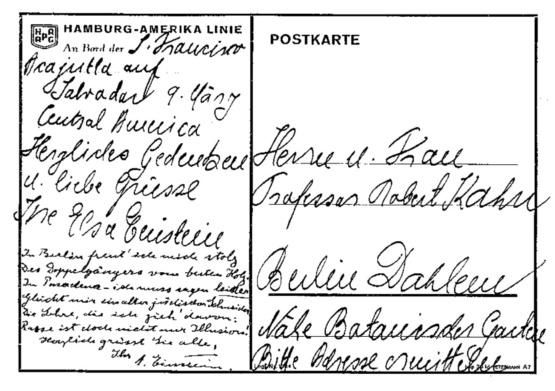 HAPAG
HAMBURG-AMERIKA LINIE
An Bord der S. Francisco
Acajutla auf
Salvador 9. März
Central America
Herzliches Gedenken
u. liebe Grüsse
Ihre Elsa Einstein
In Berlin freut' ich mich stolz
Des Doppelgängers vom besten Holz
In Pasadena - ich muss sagen leider
Gleicht mir ein alter jüdischer Schneider
Die Lehre, die ich zieh' davon:
Rasse ist doch nicht nur Illusion!
Herzlich grüsst Sie alle,
Ihr A. Einstein
POSTKARTE
Herrn u. Frau
Professor Robert Kahn
Berlin Dahlem
Nähe Botanischer Garten
Bitte Adresse ermitteln